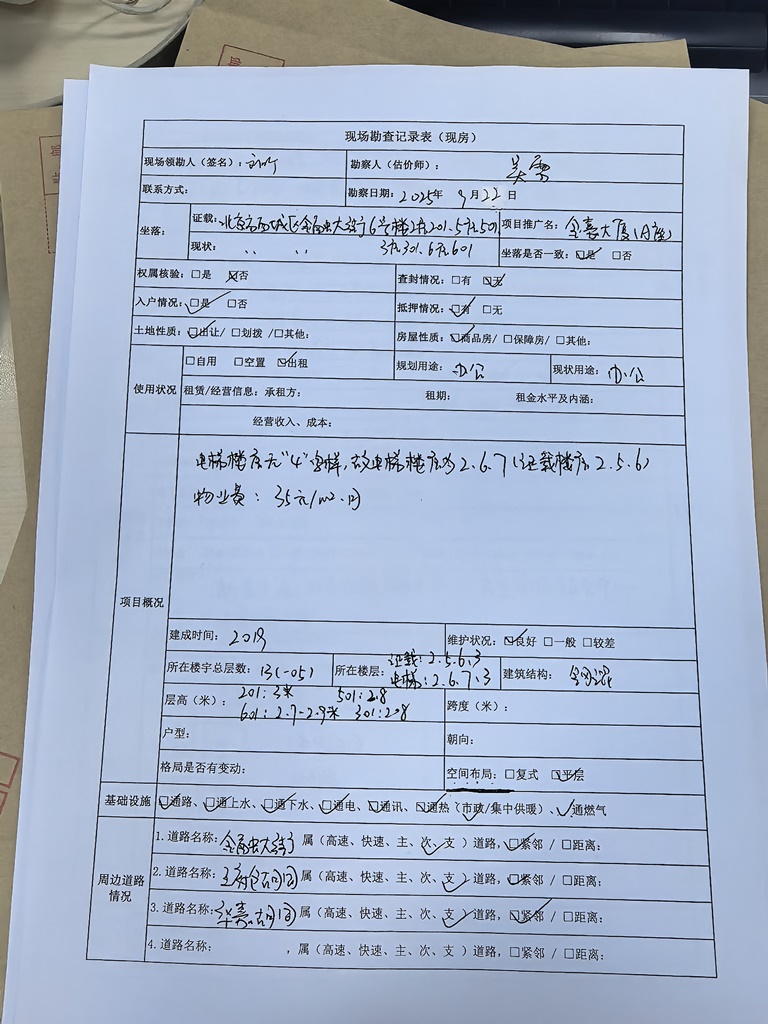 现场勘查记录表（现房）
现场领勘人（签名）： 勘察人（估价师）： 吴雪
联系方式： 勘察日期：2025年 9月22日
坐落： 证载：北京市西城区金融大街6号楼2层201.5层501 项目推广名：金嘉大厦(A座)
现状： 〃 〃 3层301.6层601 坐落是否一致：☑是 □否
权属核验：□是 ☑否 查封情况：□有 ☑无
入户情况：☑是 □否 抵押情况：☑有 □无
土地性质：☑出让/ □划拨 /□其他： 房屋性质：☑商品房/ □保障房/ □其他：
使用状况 □自用 □空置 ☑出租 规划用途：办公 现状用途：办公
租赁/经营信息：承租方： 租期： 租金水平及内涵：
经营收入、成本：
项目概况
电梯楼层无“4”字样，故电梯楼层为2.6.7（证载楼层2.5.6）
物业费：35元/m2.月
建成时间：2019 维护状况：☑良好 □一般 □较差
所在楼宇总层数：13(-05) 所在楼层：证载：2.5.6、3 电梯：2.6.7、3 建筑结构：钢混
层高（米）：201：3米 501：2.8
601：2.7-2.9米 301：2.8 跨度（米）：
户型： 朝向：
格局是否有变动： 空间布局：□复式 ☑平层
基础设施 ☑通路、☑通上水、☑通下水、☑通电、☑通讯、☑通热（市政/集中供暖）、☑通燃气
周边道路情况
1.道路名称：金融大街 属（高速、快速、主、次、支）道路，☑紧邻 / □距离：
2.道路名称：王府仓胡同 属（高速、快速、主、次、支）道路，☑紧邻 / □距离：
3.道路名称：华嘉胡同 属（高速、快速、主、次、支）道路，☑紧邻 / □距离：
4.道路名称： ，属（高速、快速、主、次、支）道路，□紧邻 / □距离：